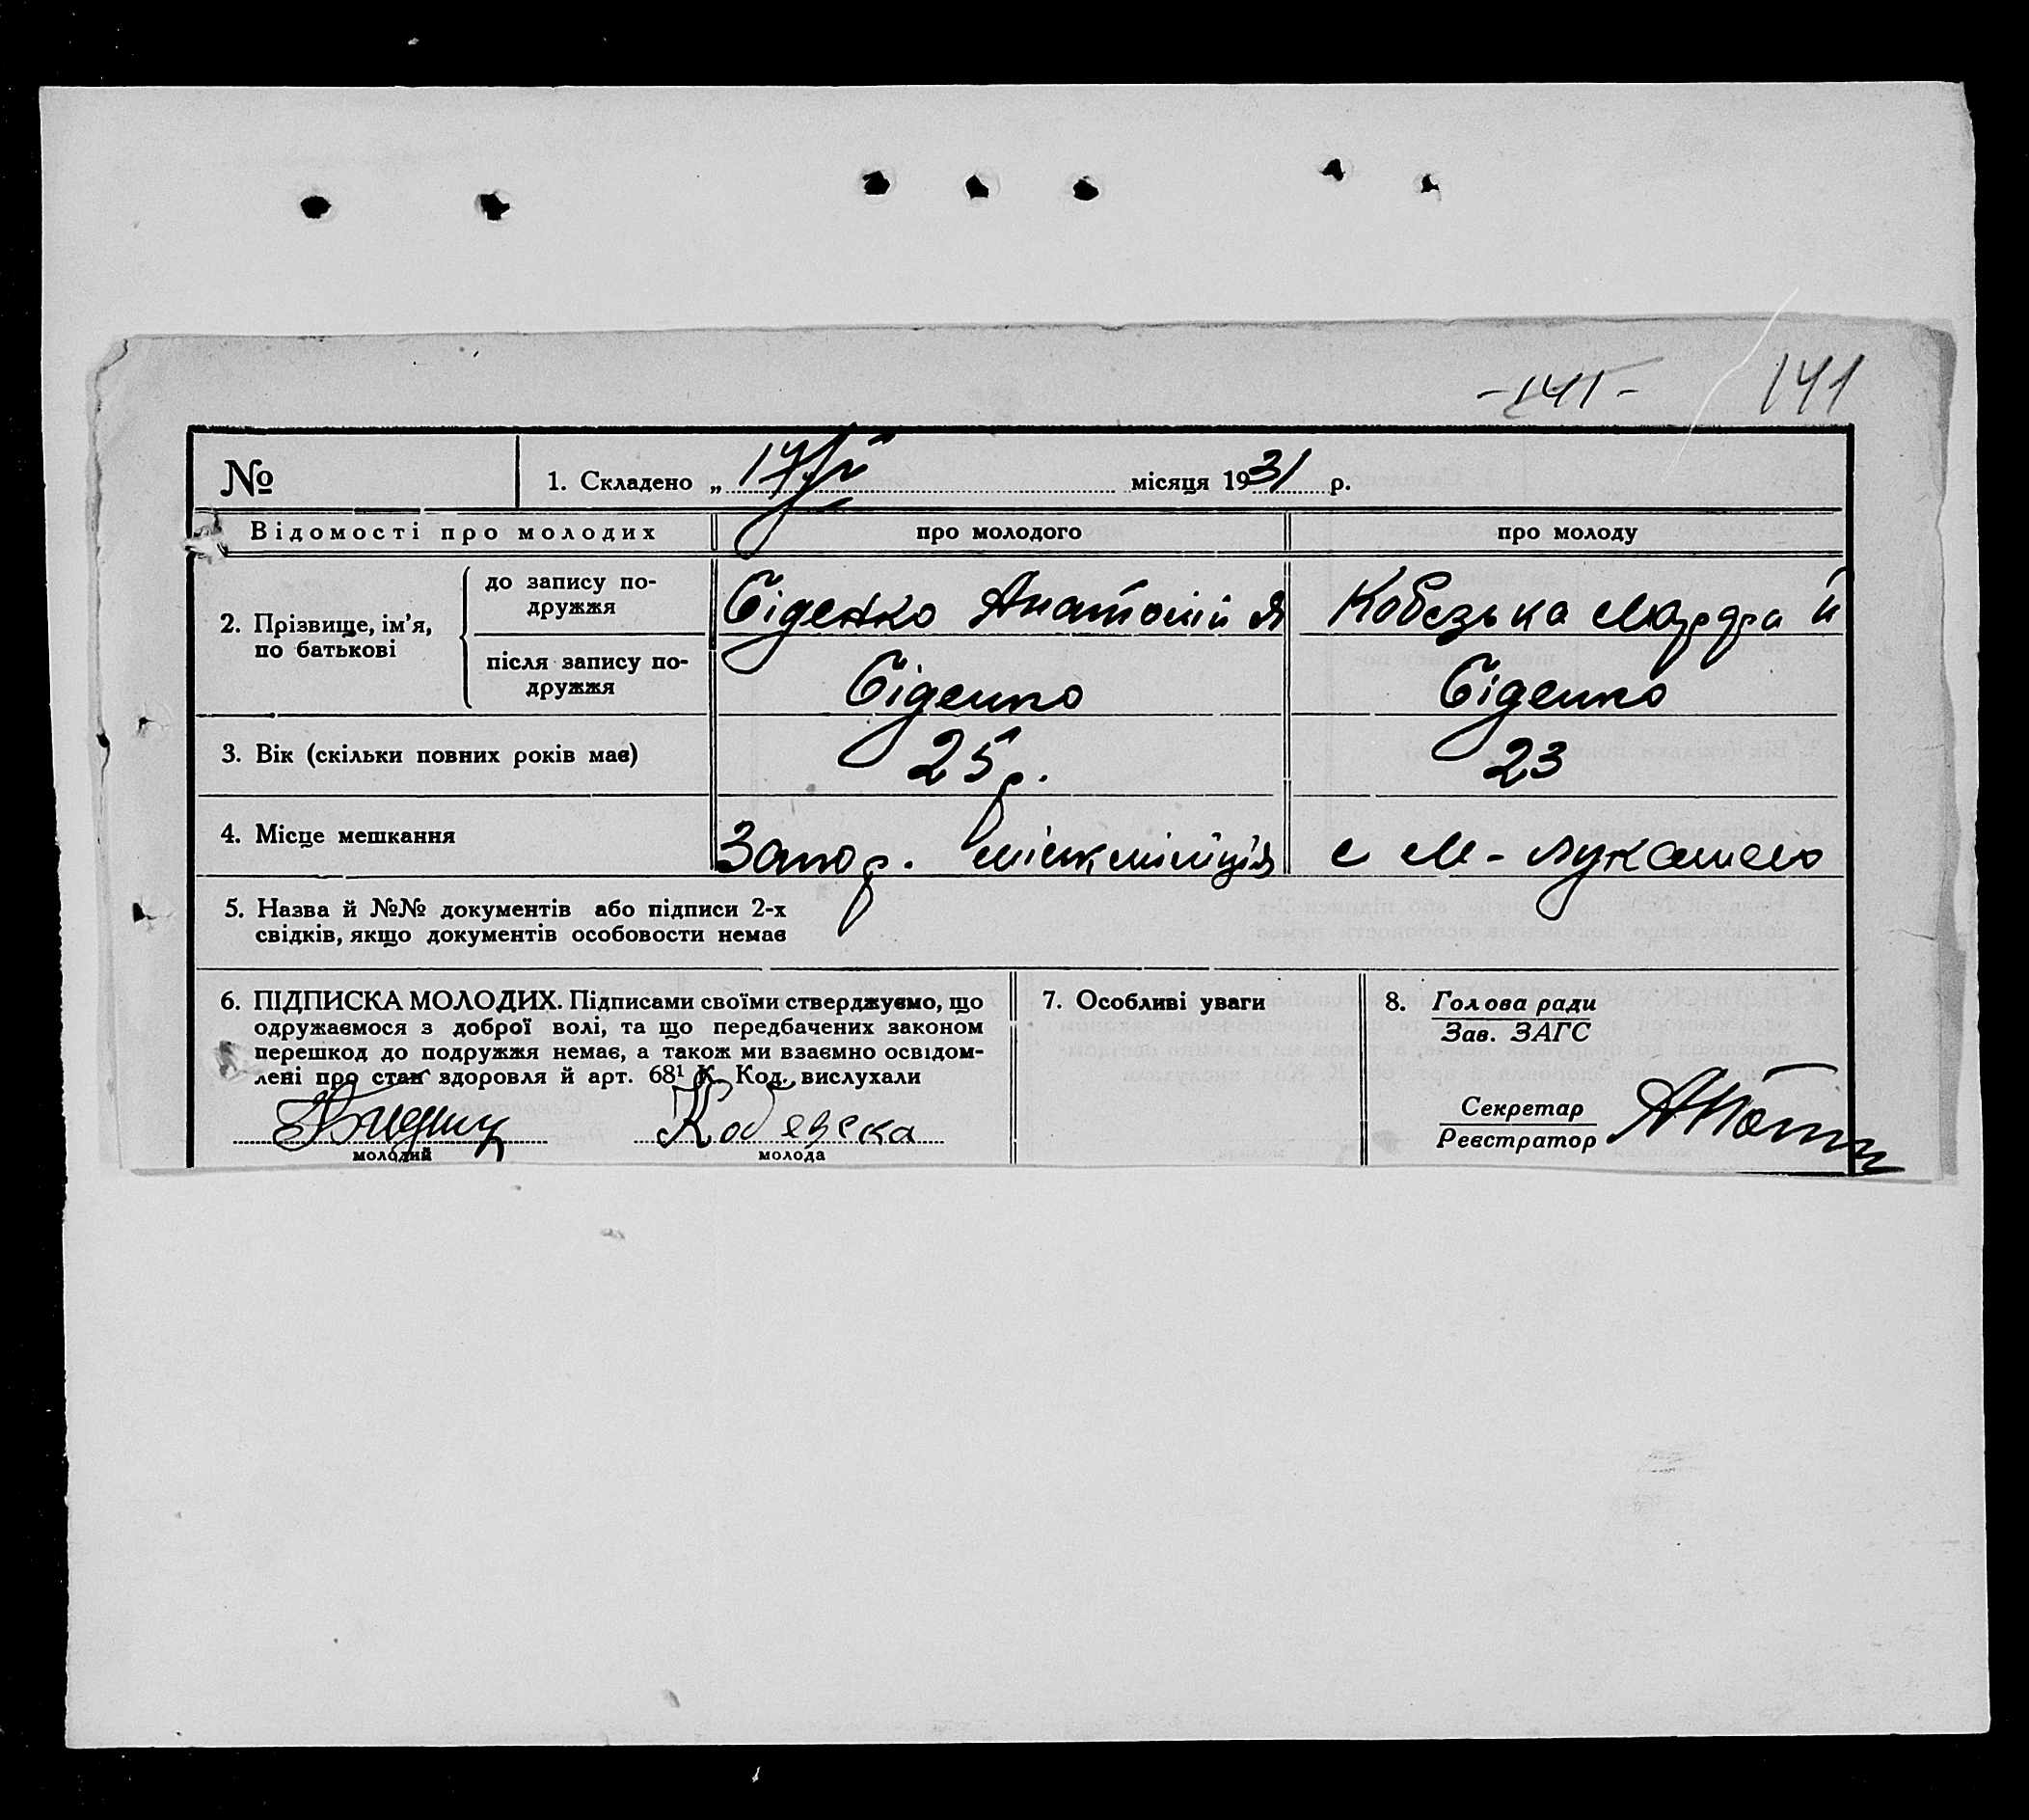 -141- 141
№ 1. Складено „ 17/V місяця 1931 р.
Відомості про молодих про молодого про молоду
2. Прізвище, ім’я, по батькові
до запису по-
дружжя
Біденко Анатолій Я
Кобезька й
після запису по-
дружжя
Біденко
Біденко
3. Вік (скільки повних років має) 25 р. 23
4. Місце мешкання Запор. міськміліція с М-Лукашево
5. Назва й №№ документів або підписи 2-х
свідків, якщо документів особовости немає
6. ПІДПИСКА МОЛОДИХ. Підписами своїми стверджуємо, що
одружаємося з доброї волі, та що передбачених законом
перешкод до подружжя немає, а також ми взаємно освідом-
лені про стан здоровля й арт. 68¹ К. Код. вислухали
Кобезска
молодий молода
7. Особливі уваги
8. Голова ради
Зав. ЗАГС
Секретар
Реєстратор